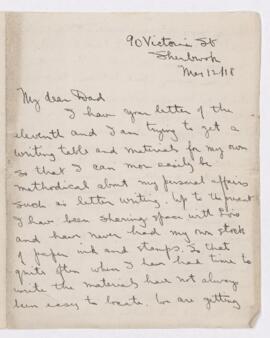 90 Victoria St
Sherbrook
May 12/18
My dear Dad
I have your letter of the
eleventh and I am trying to get a
writing table and materials for my own
so that I can more easily be
methodical about my personal affairs
such as letter writing. Up to the present
I have been sharing space with
and have never had my own stock
of paper ink and stamps. So that
quite often when I have had time to
write the materials have not always
been easy to locate. We are getting